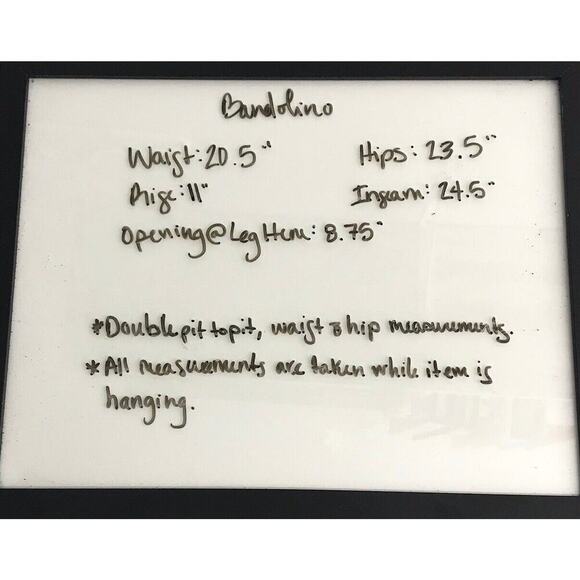 Bandolino
Waist: 20.5" Hips: 23.5"
Rise: 11" Inseam: 24.5"
Opening@Leg Hem: 8.75"
*Double pit to pit, waist & hip measurements.
*All measurements are taken while item is
hanging.